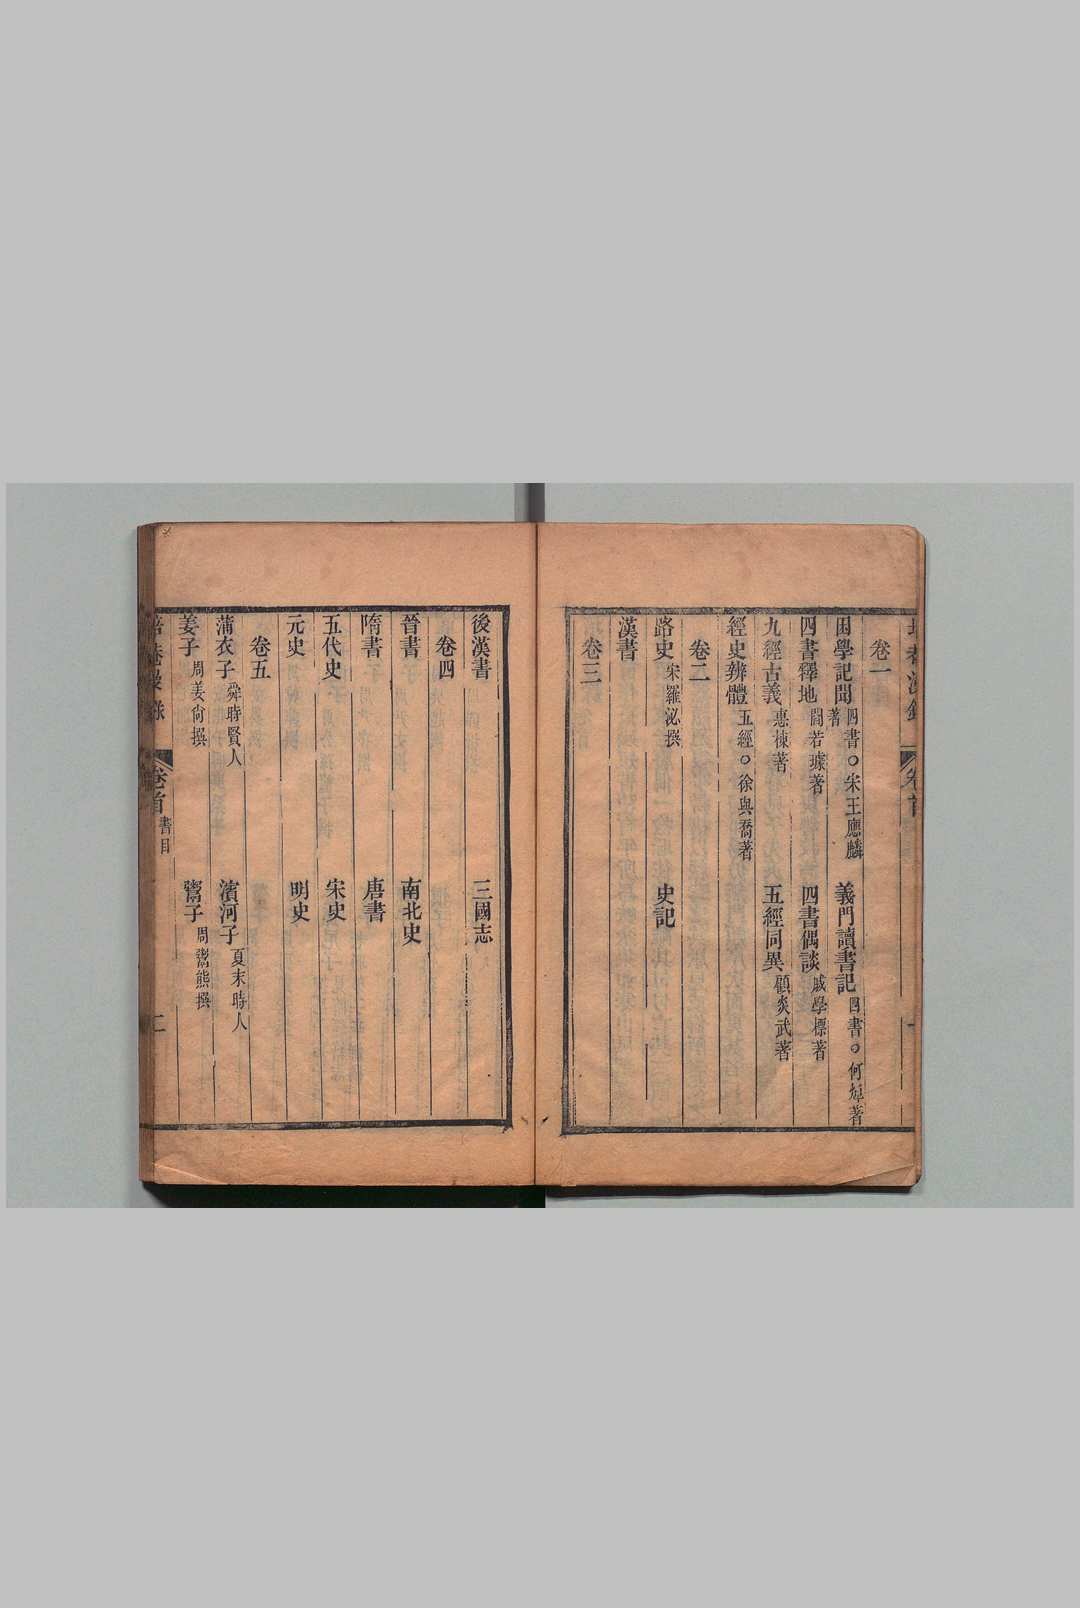 卷一
困學記聞 四書○宋王應麟著 義門讀書記 四書○何焯著
四書釋地 閻若璩著 四書偶談 戚學標著
九經古義 惠棟著 五經同異 顧炎武著
經史辨體 五經○徐與喬著
卷二
路史 宋羅泌撰 史記
漢書
卷三
後漢書 三國志
卷四
晉書 南北史
隋書 唐書
五代史 宋史
元史 明史
卷五
蒲衣子 舜時賢人 濱河子 夏末時人
姜子 周姜尚撰 鬻子 周鬻熊撰
卷首 書目 二